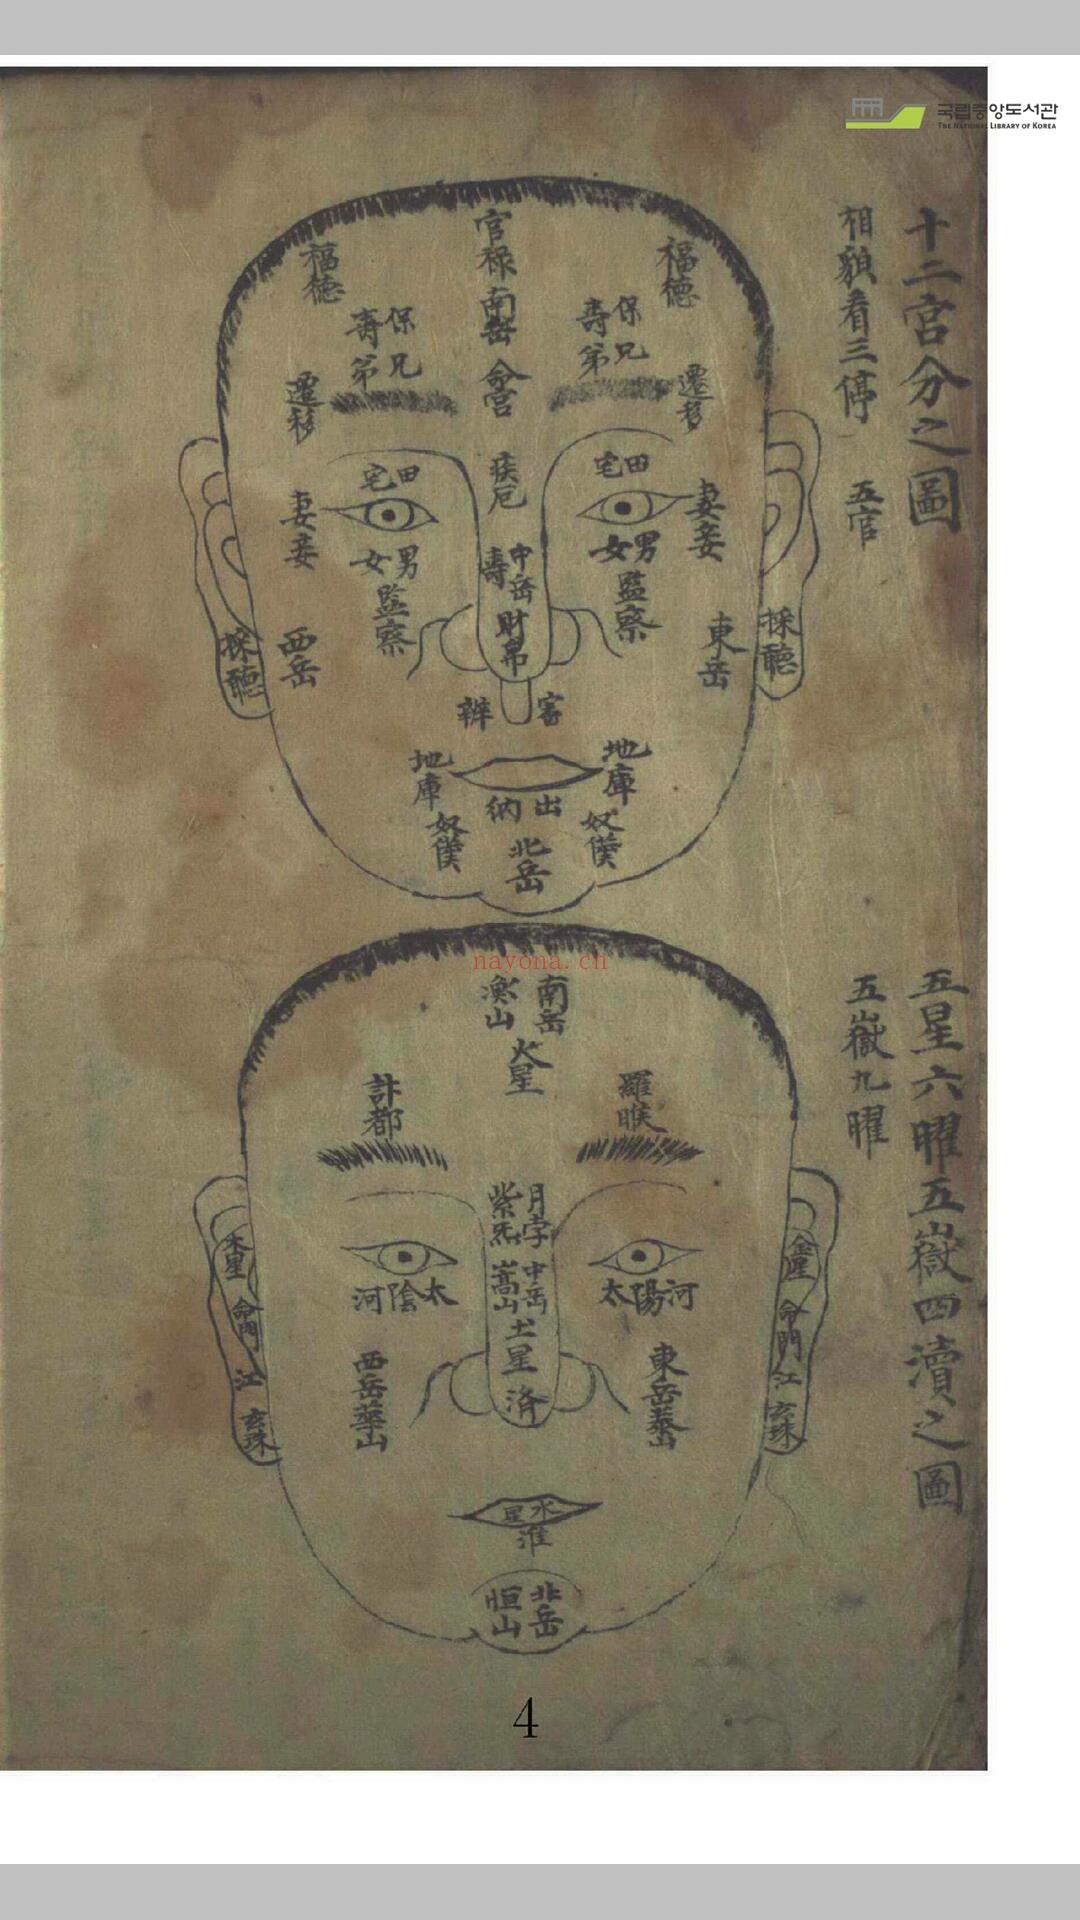 국립중앙도서관
THE NATIONAL LIBRARY OF KOREA
十二宮分之圖
相貌看三停 五官
官祿
南岳
命宮
福德
福德
保壽
兄弟
保壽
兄弟
遷移
遷移
疾厄
田宅
田宅
妻妾
妻妾
男女
男女
中岳
壽
財帛
監察
監察
東岳
西岳
採聽
採聽
審辨
地庫
地庫
出納
奴僕
奴僕
北岳
nayona.cn
五星六曜五嶽四瀆之圖
五嶽九曜
南岳
衡山
火星
羅睺
計都
月孛
紫炁
中岳
嵩山
土星
済
太陽河
太陰河
金星
命門
江
玄珠
木星
命門
江
玄珠
東岳
西岳華山
水星
淮
北岳
恒山
4